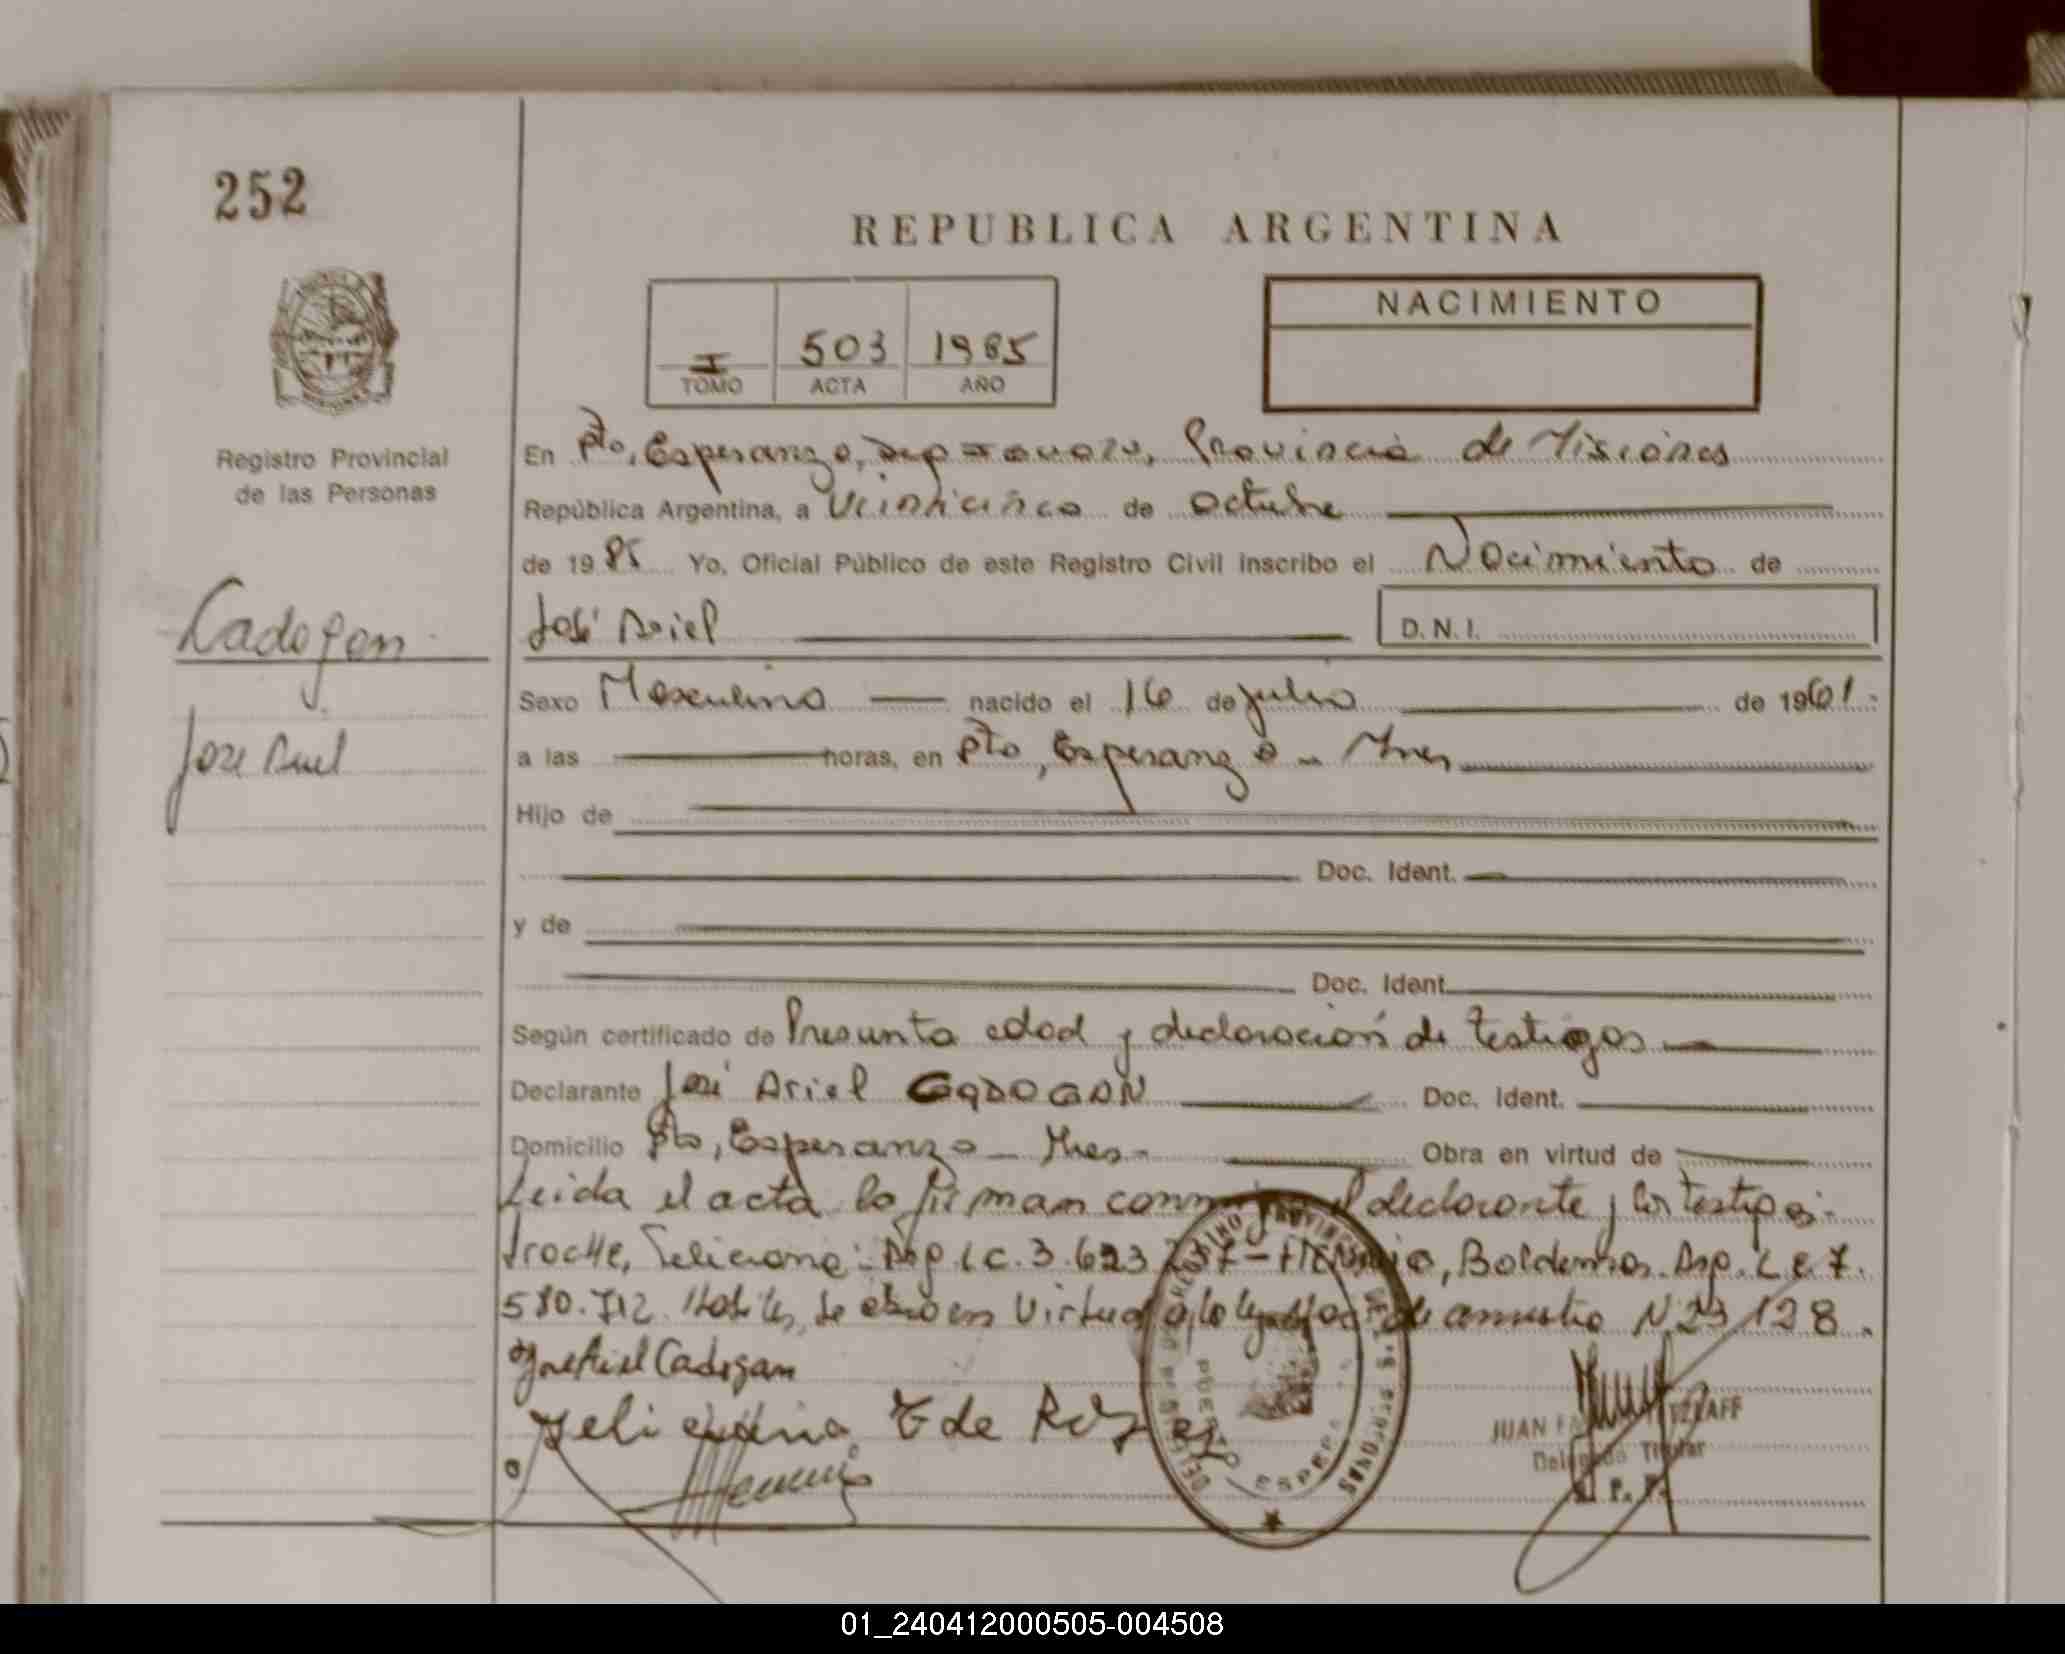 252
REPUBLICA ARGENTINA
I 503 1985
TOMO ACTA AÑO
NACIMIENTO
Registro Provincial
de las Personas
Cadogan
José Ariel
En Pto. Esperanza, Dep Iguazu, Provincia de Misiones
República Argentina, a veinticinco de octubre
de 1985 Yo, Oficial Público de este Registro Civil inscribo el Nacimiento de
José Ariel
D.N.I.
Sexo Masculino nacido el 16 de julio de 1961.
a las horas, en Pto, Esperanza - Mnes
Hijo de
Doc. Ident.
y de
Doc. Ident.
Según certificado de Presunta edad y declaración de testigos
Declarante José Ariel CADOGAN Doc. Ident.
Domicilio Pto, Esperanza - Mnes - Obra en virtud de
Leida el acta la firman conmigo el declarante y los testigos:
Troche, Feliciana: Arg. L C. 3.623 Boldemar. Arg. L e 7.
580.712. Habiles, se obro en virtud a la ley de amnistia N 23 128.
José Ariel Cadogan
Feliciana T de
JUAN
Delegado Titular
R. P. P.
PUERTO ESPERANZA
01_240412000505-004508